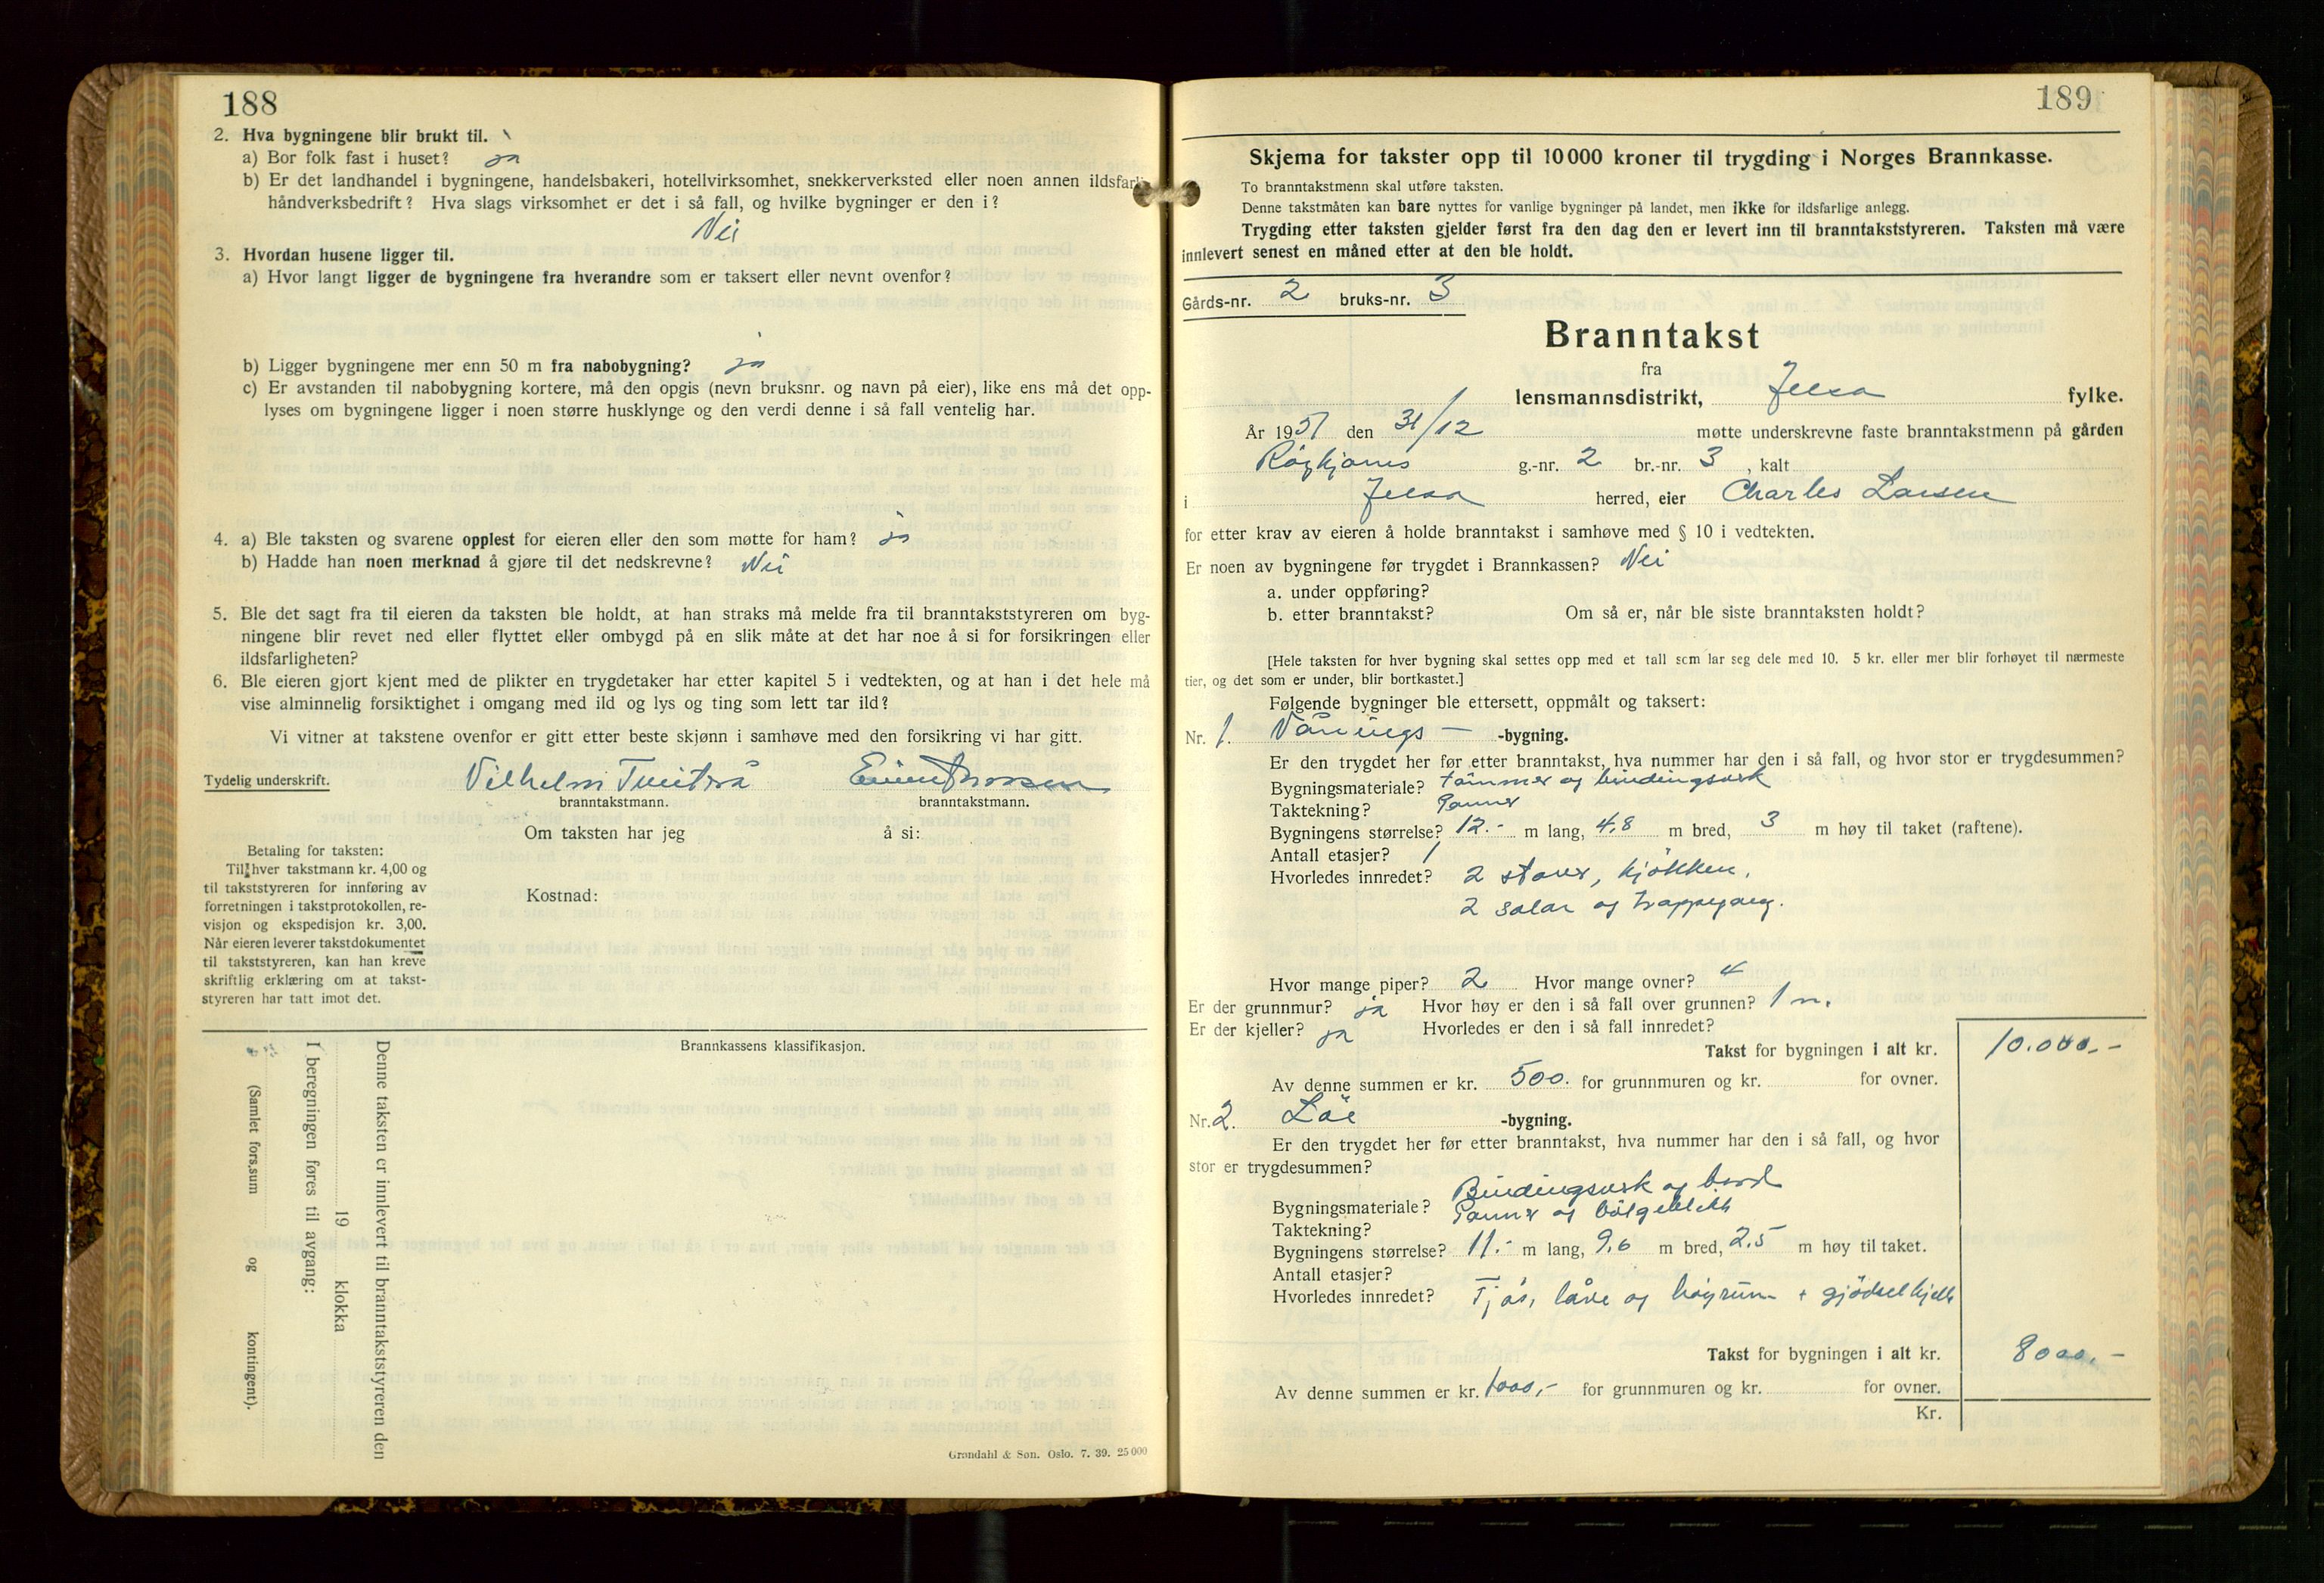 188
2. Hva bygningene blir brukt til.
a) Bor folk fast i huset? ja
b) Er det landhandel i bygningene, handelsbakeri, hotellvirksomhet, snekkerverksted eller noen annen ildsfarlig
håndverksbedrift? Hva slags virksomhet er det i så fall, og hvilke bygninger er den i?
Nei
3. Hvordan husene ligger til.
a) Hvor langt ligger de bygningene fra hverandre som er taksert eller nevnt ovenfor?
b) Ligger bygningene mer enn 50 m fra nabobygning? ja
c) Er avstanden til nabobygning kortere, må den opgis (nevn bruksnr. og navn på eier), like ens må det opp-
lyses om bygningene ligger i noen større husklynge og den verdi denne i så fall ventelig har.
4. a) Ble taksten og svarene opplest for eieren eller den som møtte for ham? ja
b) Hadde han noen merknad å gjøre til det nedskrevne? Nei
5. Ble det sagt fra til eieren da taksten ble holdt, at han straks må melde fra til branntakststyreren om byg-
ningene blir revet ned eller flyttet eller ombygd på en slik måte at det har noe å si for forsikringen eller
ildsfarligheten?
6. Ble eieren gjort kjent med de plikter en trygdetaker har etter kapitel 5 i vedtekten, og at han i det hele må
vise alminnelig forsiktighet i omgang med ild og lys og ting som lett tar ild?
Vi vitner at takstene ovenfor er gitt etter beste skjønn i samhøve med den forsikring vi har gitt.
Tydelig underskrift. Vilhelm
branntakstmann. branntakstmann.
Om taksten har jeg å si:
Betaling for taksten:
Til hver takstmann kr. 4,00 og
til takststyreren for innføring av
forretningen i takstprotokollen, re-
visjon og ekspedisjon kr. 3,00.
Når eieren leverer takstdokumentet
til takststyreren, kan han kreve
skriftlig erklæring om at takst-
styreren har tatt imot det.
Kostnad:
Brannkassens klassifikasjon.
Denne taksten er innlevert til branntakststyreren den
19 klokka
I beregningen føres til avgang:
(Samlet fors.sum og kontingent).
Grøndahl & Søn. Oslo. 7. 39. 25 000
189
Skjema for takster opp til 10 000 kroner til trygding i Norges Brannkasse.
To branntakstmenn skal utføre taksten.
Denne takstmåten kan bare nyttes for vanlige bygninger på landet, men ikke for ildsfarlige anlegg.
Trygding etter taksten gjelder først fra den dag den er levert inn til branntakststyreren. Taksten må være
innlevert senest en måned etter at den ble holdt.
Gårds-nr. 2 bruks-nr. 3
Branntakst
fra
lensmannsdistrikt, Jelsa fylke.
År 1951 den 31/12 møtte underskrevne faste branntakstmenn på gården
g.-nr. 2 br.-nr. 3, kalt
i Jelsa herred, eier Charles Larsen
for etter krav av eieren å holde branntakst i samhøve med § 10 i vedtekten.
Er noen av bygningene før trygdet i Brannkassen? Nei
a. under oppføring?
b. etter branntakst? Om så er, når ble siste branntaksten holdt?
[Hele taksten for hver bygning skal settes opp med et tall som lar seg dele med 10. 5 kr. eller mer blir forhøyet til nærmeste
tier, og det som er under, blir bortkastet.]
Følgende bygninger ble ettersett, oppmålt og taksert:
Nr. 1. Vånings- -bygning.
Er den trygdet her før etter branntakst, hva nummer har den i så fall, og hvor stor er trygdesummen?
Bygningsmateriale? tømmer og bindingsverk
Taktekning? Panner
Bygningens størrelse? 12.- m lang, 4,8 m bred, 3 m høy til taket (raftene).
Antall etasjer? 1
Hvorledes innredet? 2 stover, kjøkken,
2 salar og trappegang.
Hvor mange piper? 2 Hvor mange ovner? 4
Er der grunnmur? ja Hvor høy er den i så fall over grunnen? 1 m.
Er der kjeller? ja Hvorledes er den i så fall innredet?
Takst for bygningen i alt kr. 10.000.-
Av denne summen er kr. 500. for grunnmuren og kr. for ovner.
Nr. 2. Løe -bygning.
Er den trygdet her før etter branntakst, hva nummer har den i så fall, og hvor
stor er trygdesummen?
Bygningsmateriale? Bindingsverk og bord
Taktekning? Panner og bølgeblikk
Bygningens størrelse? 11.- m lang, 9,6 m bred, 2,5 m høy til taket.
Antall etasjer?
Hvorledes innredet? Fjøs, låve og høyrum + gjødselkjell
Takst for bygningen i alt kr. 8000.-
Av denne summen er kr. 1000,- for grunnmuren og kr. for ovner.
Kr.